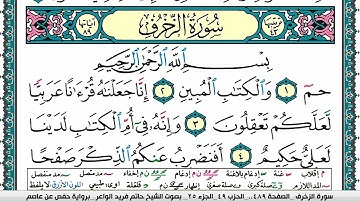 ترتيبها ٤٣ سُورَةُ الزُّخْرُفِ آياتها ٨٩
بِسْمِ اللَّهِ الرَّحْمَٰنِ الرَّحِيمِ
حمٓ ١ وَالْكِتَٰبِ الْمُبِينِ ٢ إِنَّا جَعَلْنَٰهُ قُرْءَٰنًا عَرَبِيًّا
لَّعَلَّكُمْ تَعْقِلُونَ ٣ وَإِنَّهُۥ فِىٓ أُمِّ الْكِتَٰبِ لَدَيْنَا
لَعَلِىٌّ حَكِيمٌ ٤ أَفَنَضْرِبُ عَنكُمُ الذِّكْرَ صَفْحًا
سورة الزخرف . الصفحة ٤٨٩ . الحزب ٤٩ . الجزء ٢٥ . بصوت الشيخ حاتم فريد الواعر . برواية حفص عن عاصم